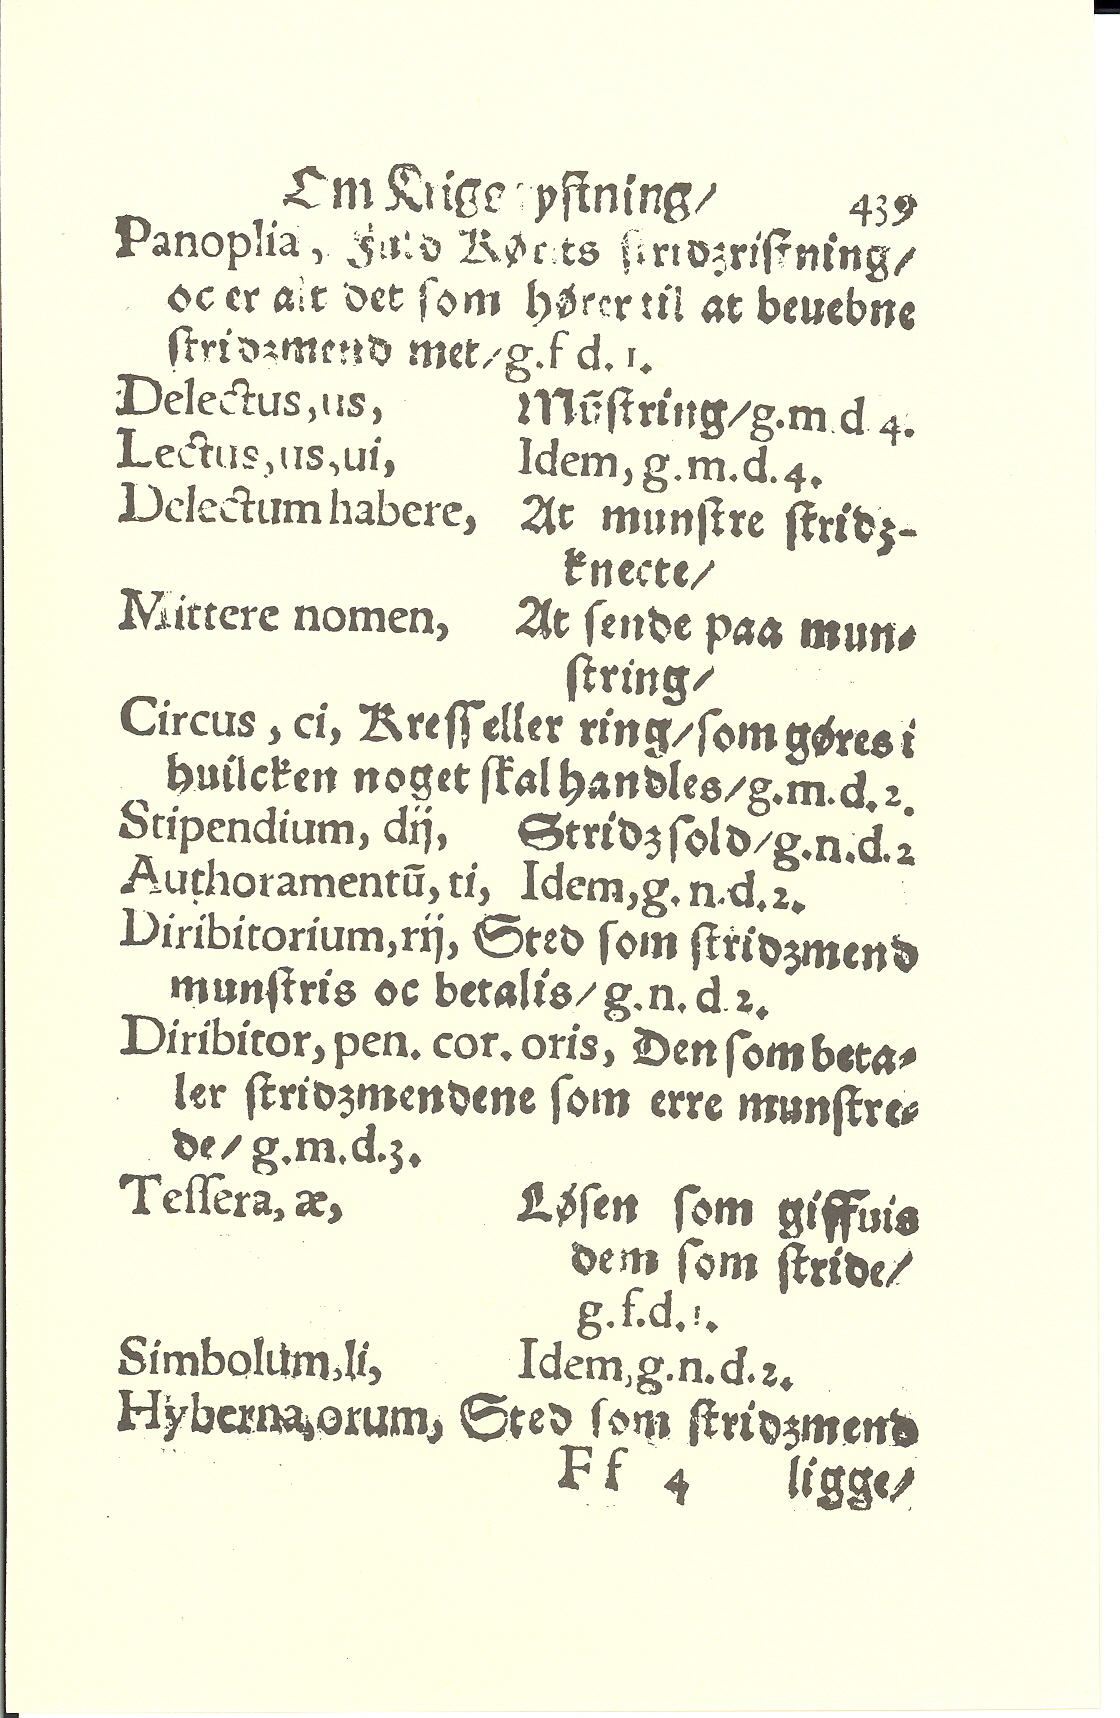 Om Krigs rystning/ 439
Panoplia, Fuld Kørits stridzristning/
oc er alt det som hører til at beuebne
stridzmend met/g.f d. 1.
Delectus,us, Mūstring/g.m d 4.
Lectus,us,ui, Idem, g.m.d.4.
Delectum habere, At munstre stridz-
knecte/
Mittere nomen, At sende paa mun-
string/
Circus, ci, Kress eller ring/som gøres i
huilcken noget skal handles/g.m.d.2.
Stipendium, dij, Stridzsold/g.n.d.2
Authoramentū, ti, Idem,g.n.d.2.
Diribitorium,rij, Sted som stridzmend
munstris oc betalis/g.n.d 2.
Diribitor, pen. cor. oris, Den som beta-
ler stridzmendene som erre munstre-
de/ g.m.d.3.
Tessera, æ, Løsen som giffuis
dem som stride/
g.f.d.1.
Simbolum,li, Idem,g.n.d.2.
Hyberna,orum, Sted som stridzmend
Ff 4 ligge/